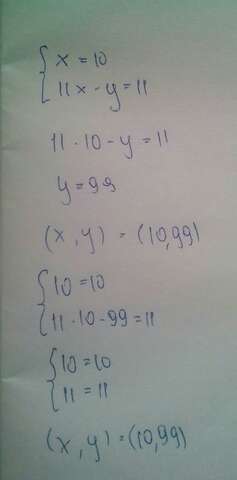 { x = 10
11x - y = 11
11 · 10 - y = 11
y = 99
(x, y) = (10,99)
{ 10 = 10
11 · 10 - 99 = 11
{ 10 = 10
11 = 11
(x, y) = (10,99)